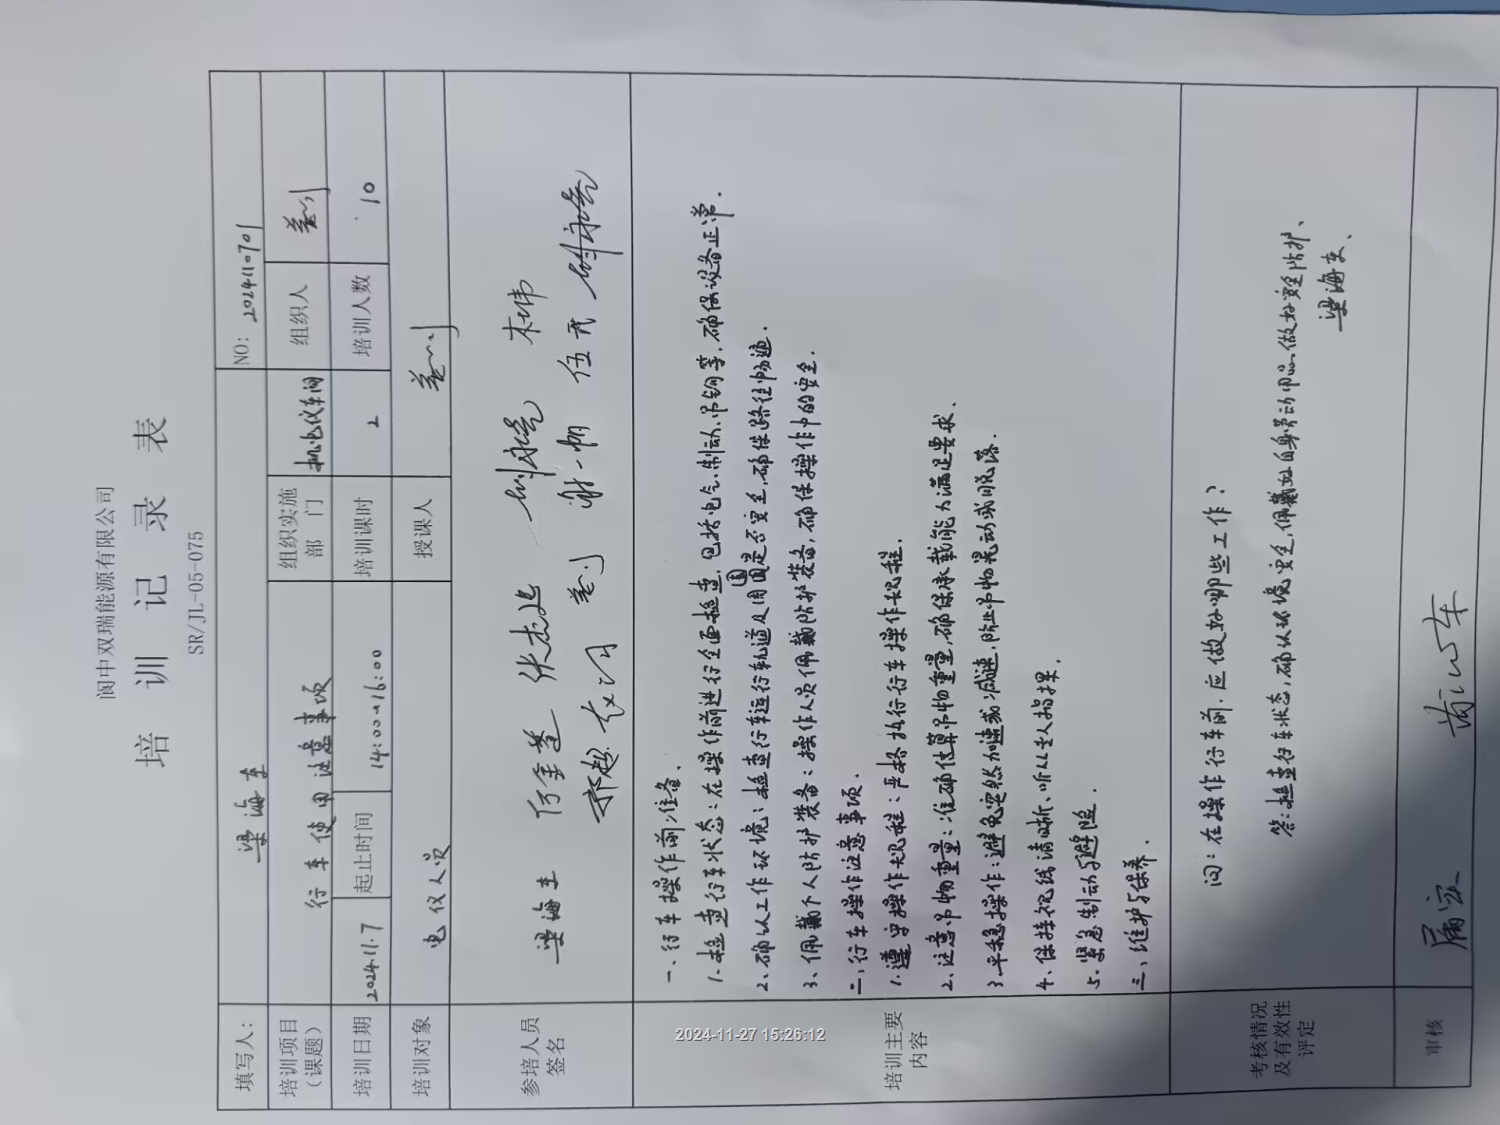 阆中双瑞能源有限公司
培 训 记 录 表
SR/JL-05-075
填写人： 梁海车 NO: 2024110701
培训项目（课题） 行车使用注意事项 组织实施部门 机电仪车间 组织人
培训日期 2024.11.7 起止时间 14:00~16:00 培训课时 2 培训人数 10
培训对象 电仪人员 授课人
参培人员签名 梁海车
培训主要内容
一、行车操作前准备.
1.检查行车状态:在操作前进行全面检查,包括电气、制动、吊钩等,确保设备正常.
2、确认工作环境:检查行车运行轨道及周围是否安全,确保路径畅通.
3、佩戴个人防护装备:操作人员佩戴防护装备,确保操作中的安全.
二、行车操作注意事项.
1.遵守操作规程:严格执行行车操作规程.
2、注意吊物重量:准确估算吊物重量,确保承载能力满足要求.
3.平稳操作:避免突然加速或减速,防止吊物晃动或脱落.
4、保持视线清晰、听从专人指挥.
5.紧急制动与避险.
三、维护与保养.
考核情况及有效性评定
问:在操作行车前.应做好哪些工作?
答:检查行车状态,确认环境安全,佩戴好自身劳动用品.做好安全防护、
梁海车、
审核
2024-11-27 15:26:12